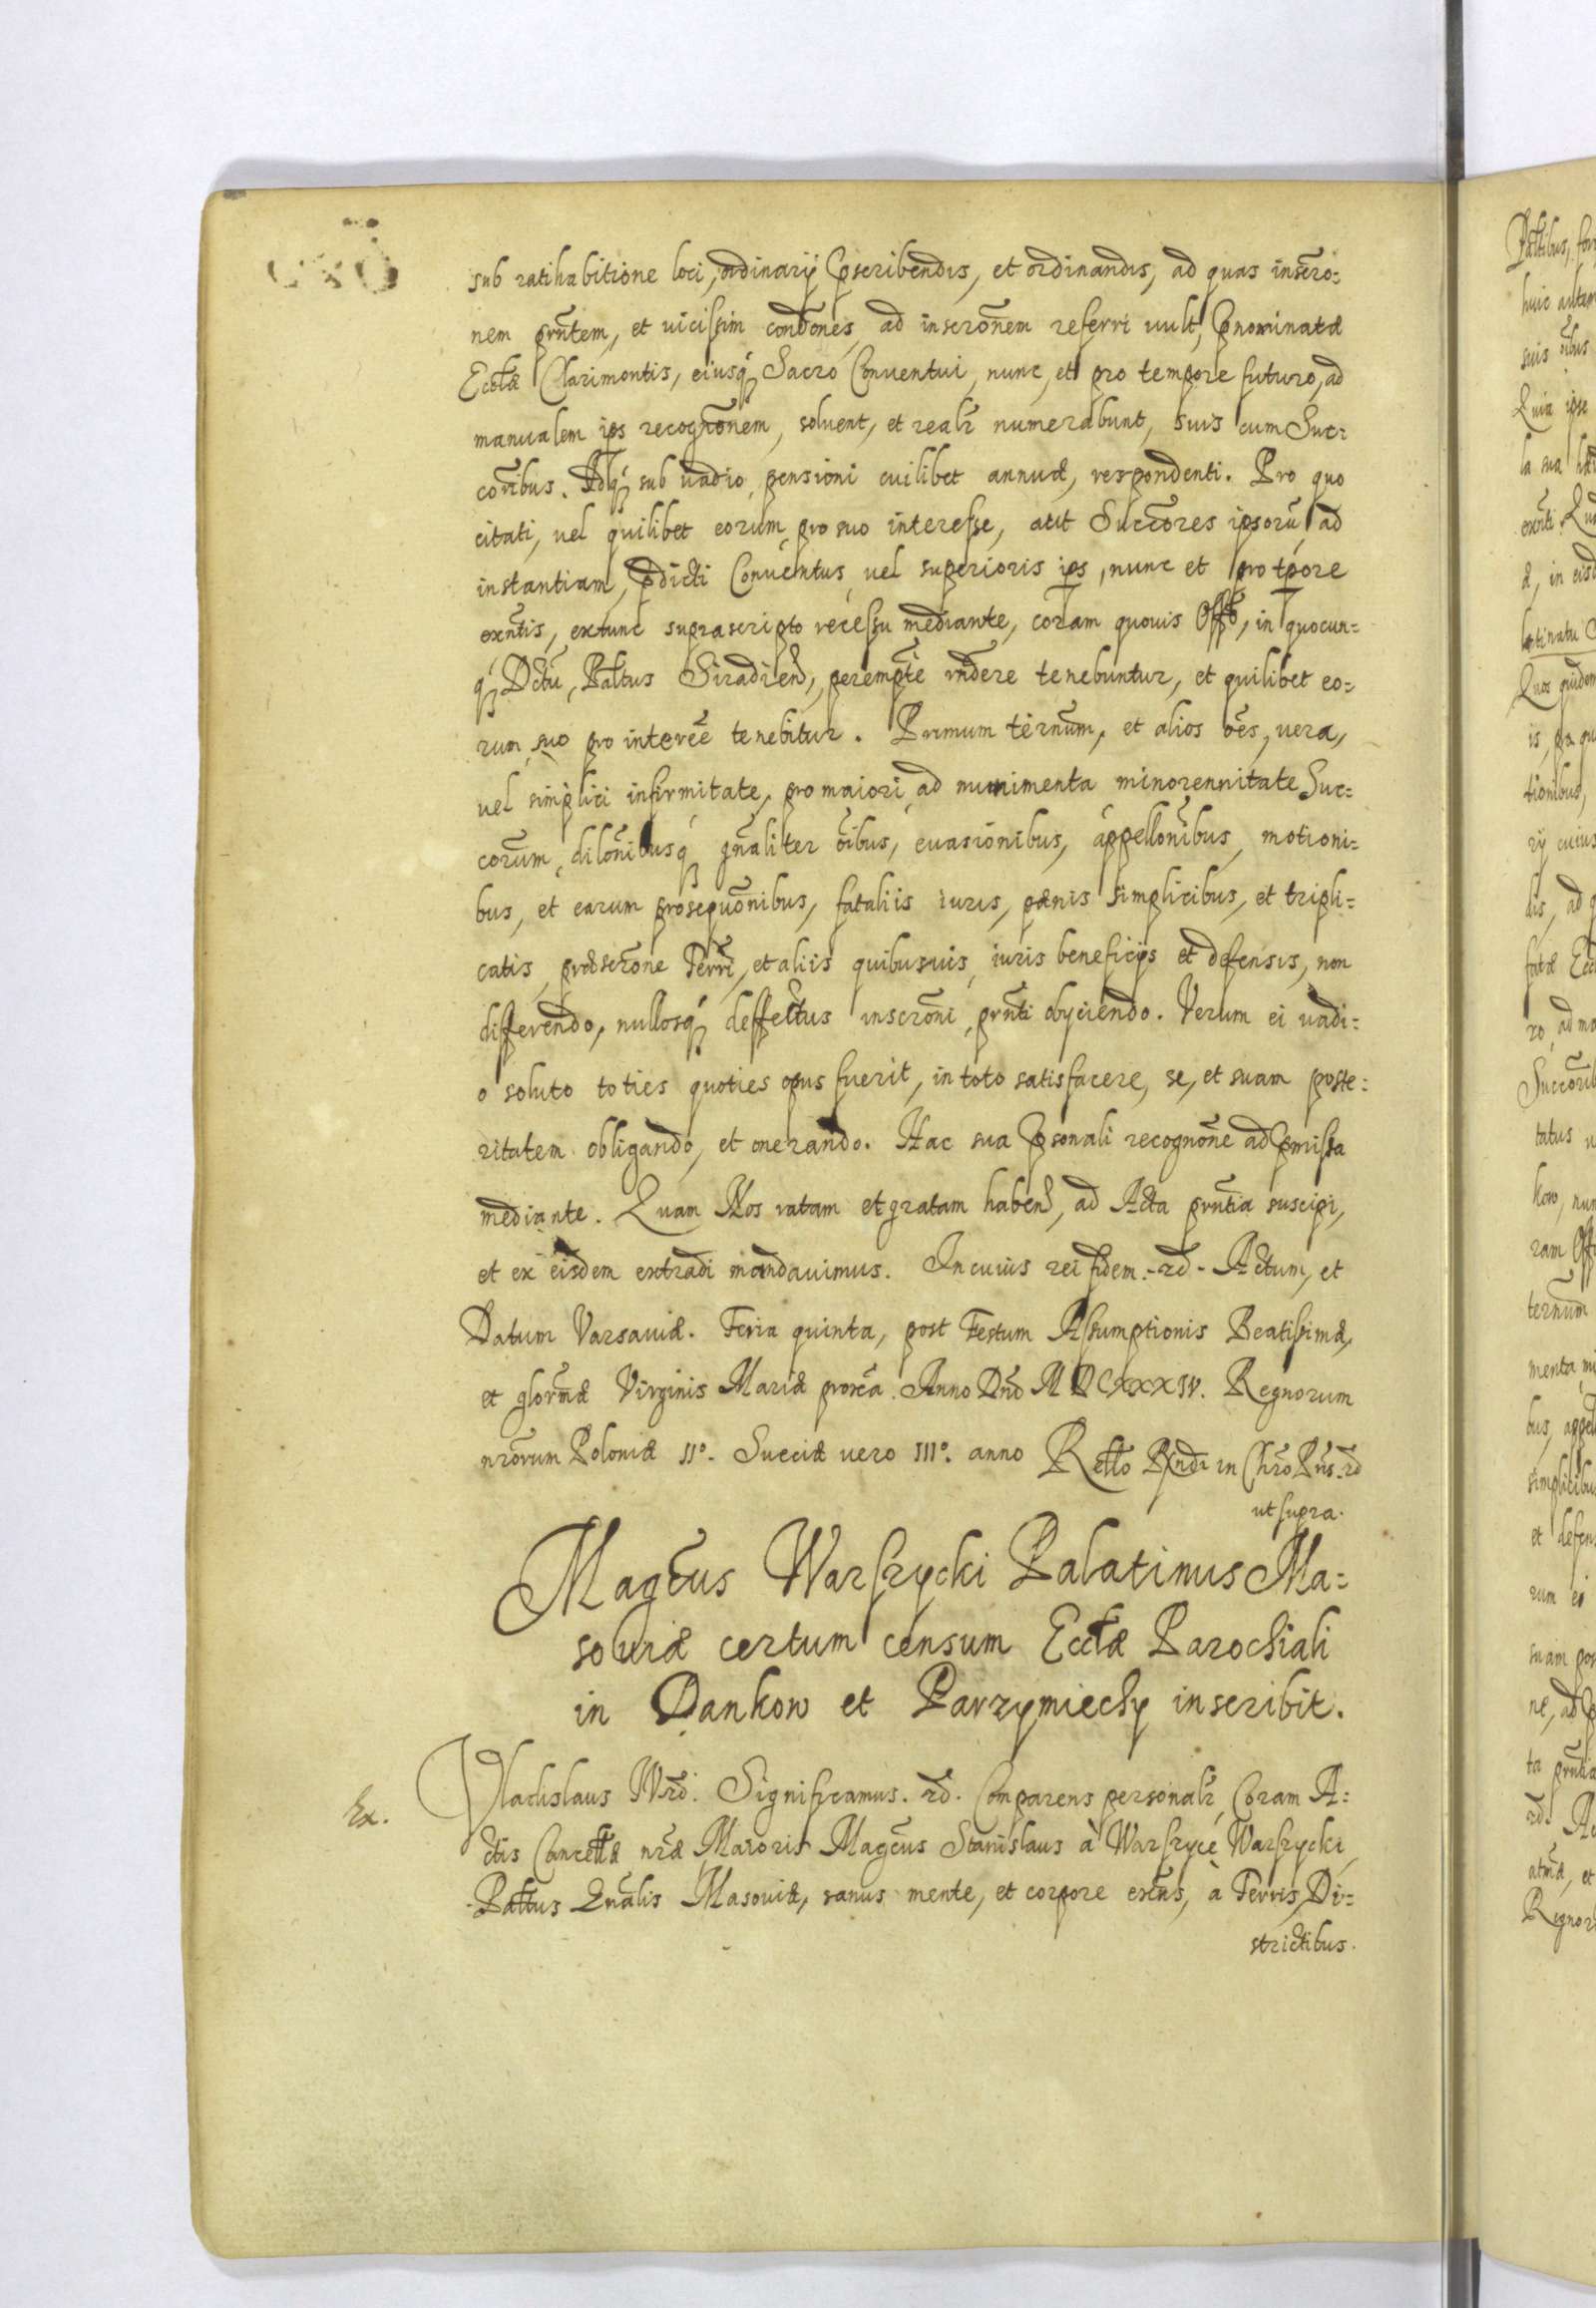 sub ratihabitione loci, ordinarij pscribendis, et ordinandis, ad quas inscro=
nem prñtem, et vicissim condones, ad inscronem referri vult, pnominatæ
Ecclæ Clarimontis, eiusq Sacro Conventui, nunc, et pro tempore futuro, ad
manualem ips recognonem, solvent, et realr numerabunt, suis cum Suc=
coribus. Idq sub vadio, pensioni cuilibet annuæ, respondenti. Pro quo
citati, vel quilibet eorum pro suo interesse, aut Succores ipsorũ, ad
instantiam, pdicti Conventus, vel superioris ips, nunc et pro tpore
exñtis, extunc suprascripto recessu mediante, coram quovis Offo, in quocun=
q Dctu, Paltus Siradien, perempte rñdere tenebuntur, et quilibet eo=
rum suo pro interee tenebitur. Primum ternum, et alios oes, vera,
vel simplici infirmitate, pro maiori, ad munimenta minorennitate Suc=
corum, dilonibusq gñaliter oibus, evasionibus, appellonibus, motioni=
bus, et earum prosequonibus, fataliis iuris, pænis simplicibus, et tripli=
catis, præscrone Terri, et aliis quibusvis, iuris beneficijs et defensis, non
differendo, nullosq deffectus inscroni, prñti obijciendo. Verum ei vadi=
o soluto toties quoties opus fuerit, in toto satisfacere, se, et suam poste=
ritatem obligando, et onerando. Hac sua psonali recognone ad pmissa
mediante. Quam Nos ratam et gratam haben, ad Acta prñtia suscipi,
et ex eisdem extradi mandavimus. In cuius rei fidem. rd. Actum, et
Datum Varsaviæ. Feria quinta, post Festum Assumptionis Beatissimæ,
et glormæ Virginis Mariæ proxa. Anno Dno MDCXXXIV. Regnorum
nrorum Poloniæ IIo. Sveciæ vero IIIo. anno Rello Rñdi in Chro Pris rd
ut supra.
Magcus Warszycki Palatinus Ma=
soviæ certum censum Ecclæ Parochiali
in Dankow et Parzymiechy inscribit.
Ex.
Vladislaus IVrd. Significamus. rd. Comparens personalr, Coram A=
ctis Cancellæ nræ Maioris Magcus Stanislaus à Warszyce Warszycki,
Paltus Gñalis Masoviæ, sanus mente, et corpore exñs, à Terris, Di=
strictibus.